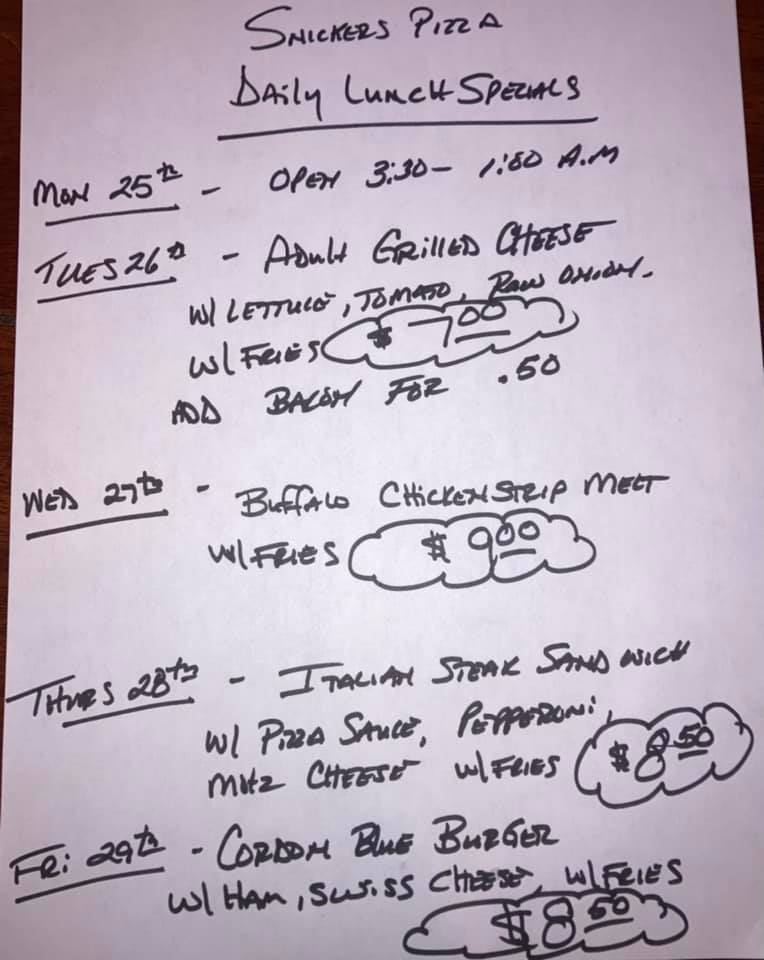 Snickers Pizza
Daily Lunch Specials
Mon 25th - Open 3:30 - 1:00 A.M
Tues 26th - Adult Grilled Cheese
w/ Lettuce, Tomato, Raw Onion.
w/ Fries $7.00
Add Bacon for .50
Wed 27th - Buffalo Chicken Strip Melt
w/ Fries $9.00
Thurs 28th - Italian Steak Sandwich
w/ Pizza Sauce, Pepperoni,
Motz Cheese w/ Fries $8.50
Fri 29th - Cordon Blue Burger
w/ Ham, Swiss Cheese w/ Fries
$8.50